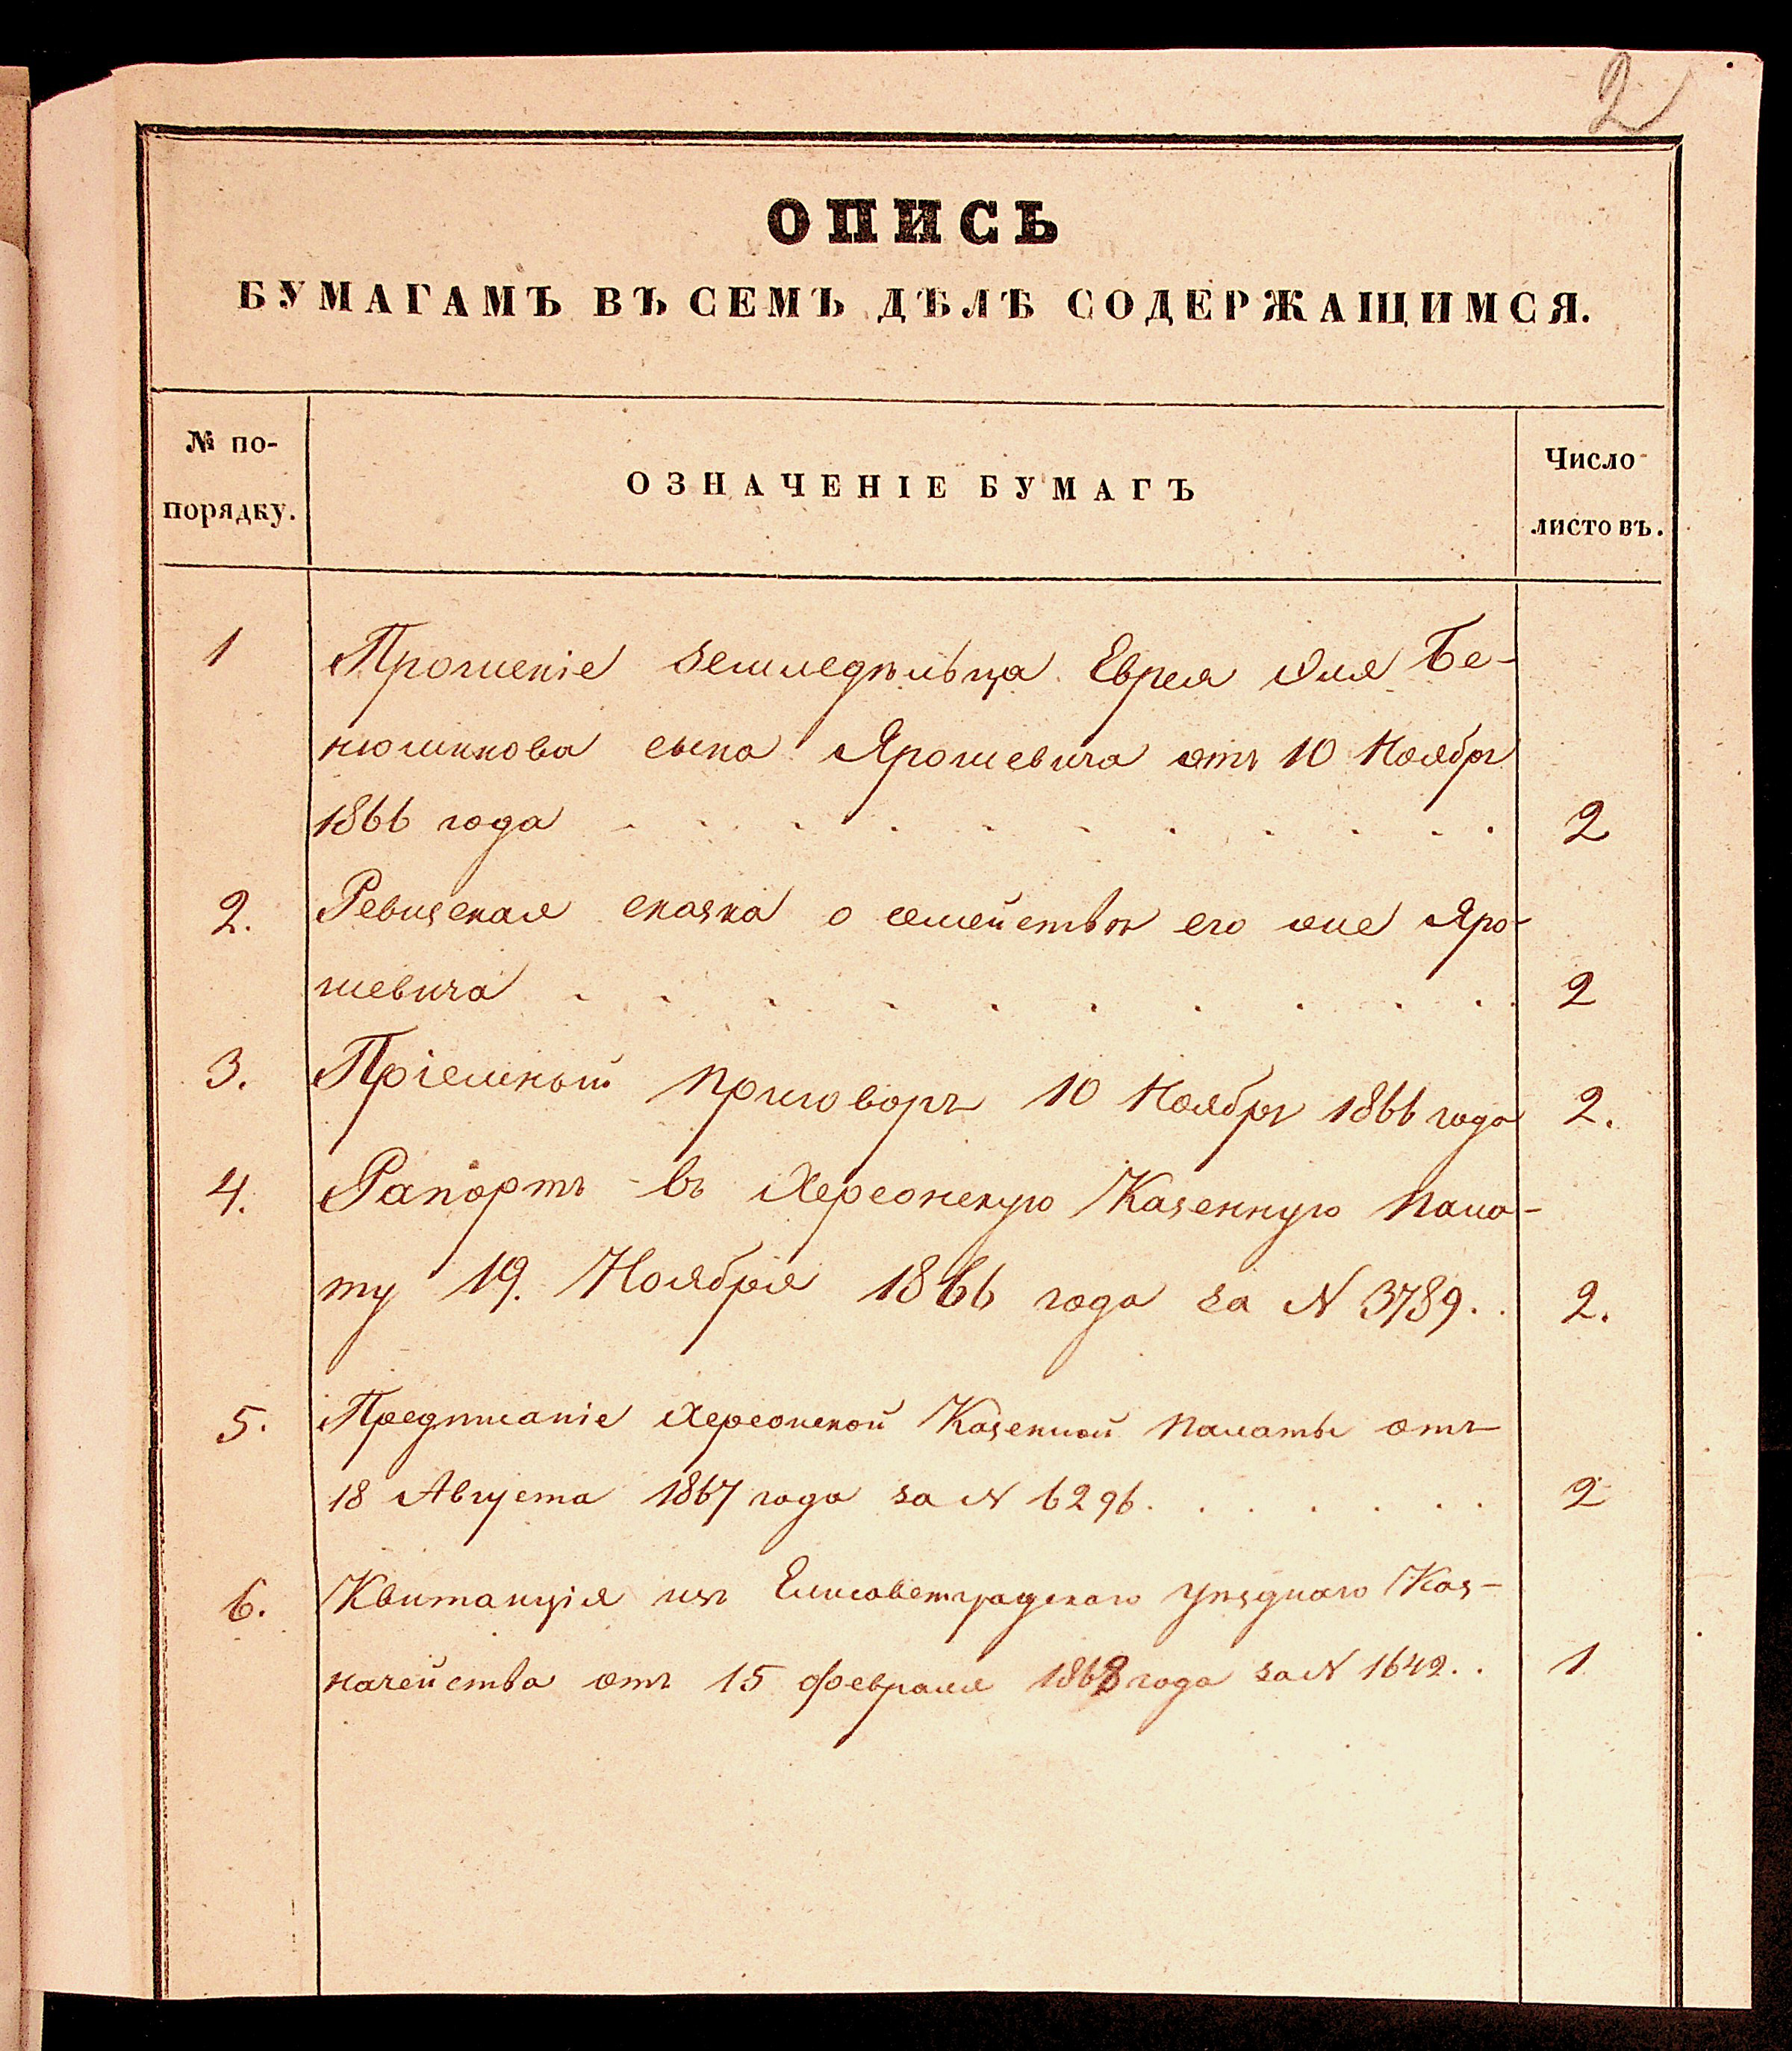 2
ОПИСЬ
БУМАГАМЪ ВЪ СЕМЪ ДѢЛѢ СОДЕРЖАЩИМСЯ.
№ по-
порядку.
ОЗНАЧЕНІЕ БУМАГЪ
Число
листовъ.
1 Прошеніе земледѣльца Еврея Эля Бе-
нюминова сына Ярошевича отъ 10 Ноябр
1866 года . . . . . . . . . . 2
2. Ревизская сказка о семействѣ его Эле Яро-
шевича . . . . . . . . . . 2
3. Пріемный приговоръ 10 Ноябр 1866 года 2.
4. Рапортъ въ Херсонскую Казенную пала-
ту 19. Ноября 1866 года за N 3789. . 2.
5. Предписаніе Херсонской Казенной палаты отъ
18 Августа 1867 года за N 6296. . . . . . . 2
6. Квитанція изъ Елисаветградскаго уѣзднаго Каз-
начейства отъ 15 февраля 1868 года за N 1642. . 1